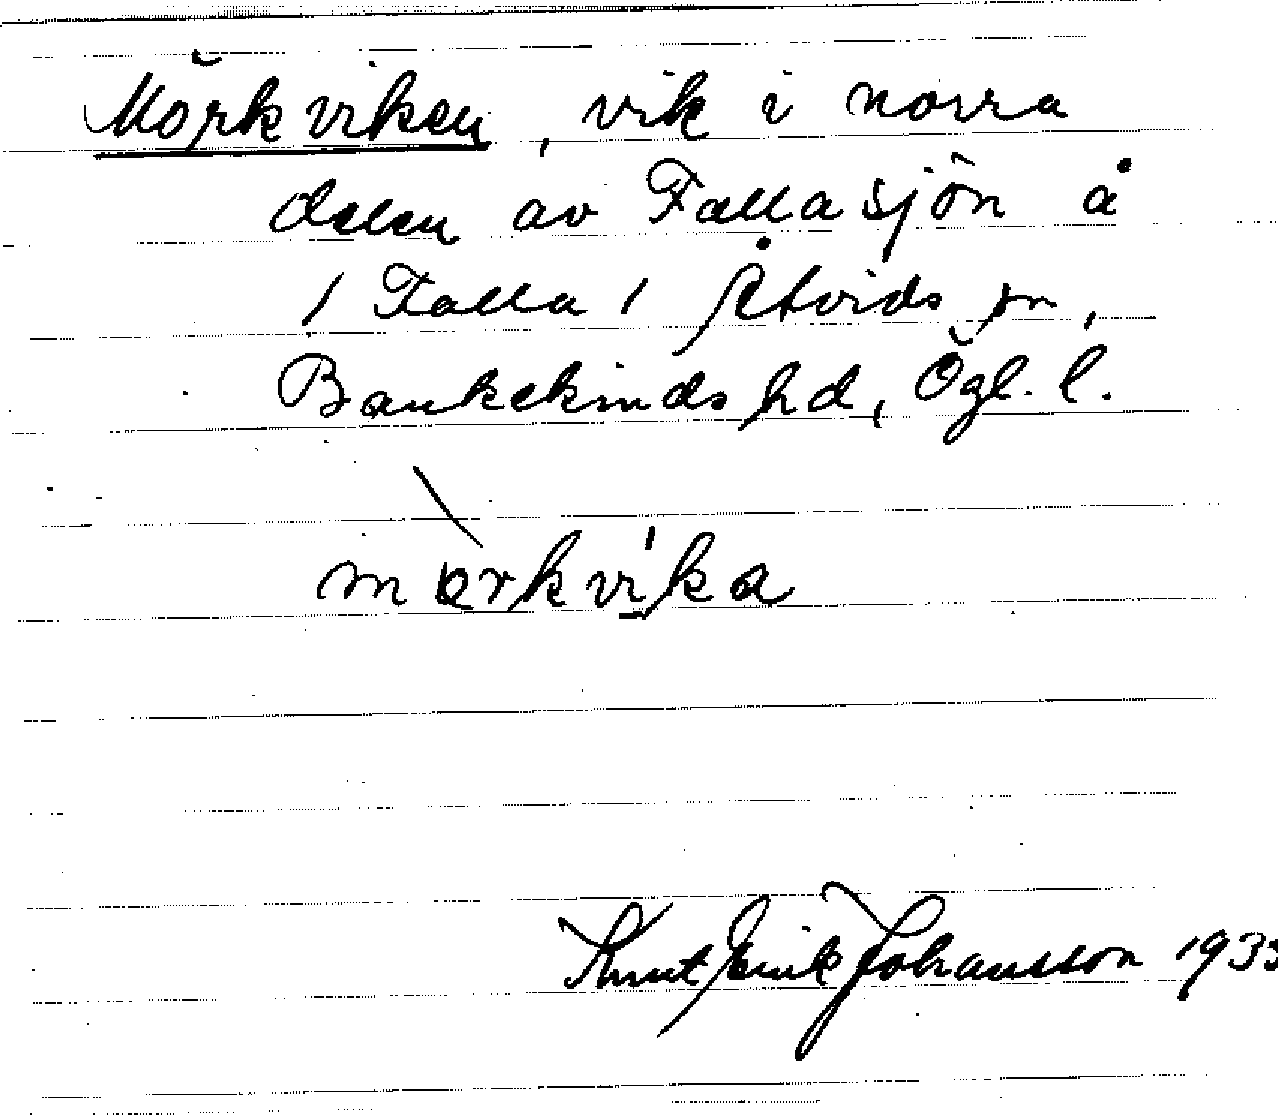 Mörkviken, vik i norra
delen av Fallasjön å
/ Falla / Åtvids sn,
Bankekinds hd, Ögl. l.
mörkvika
Knut Erik Johansson 1933